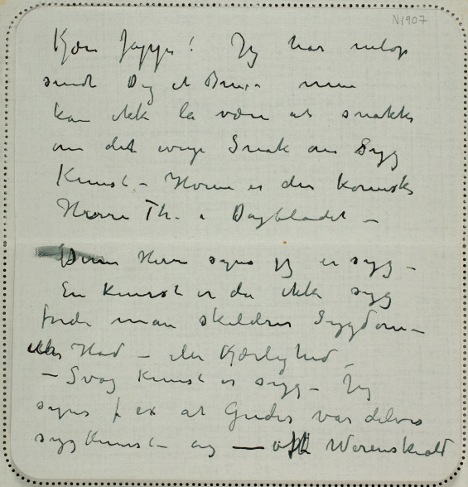 N1907
Kjære Jappe! Jeg har netop
sendt Dig et Brev – men
kan ikke la være at snakke
om det evige Snak om Syg
Kunst – Hvem er den komiske
Herre Th. i Dagbladet –
Denne Herre synes jeg er syg –
En Kunst er da ikke syg
fordi man skildrer Sygdom –
eller Had – eller Kjærlighed –
– Svag Kunst er syg – Jeg
synes f ex at Gudes var delvis
syg Kunst – og – Werenskiold